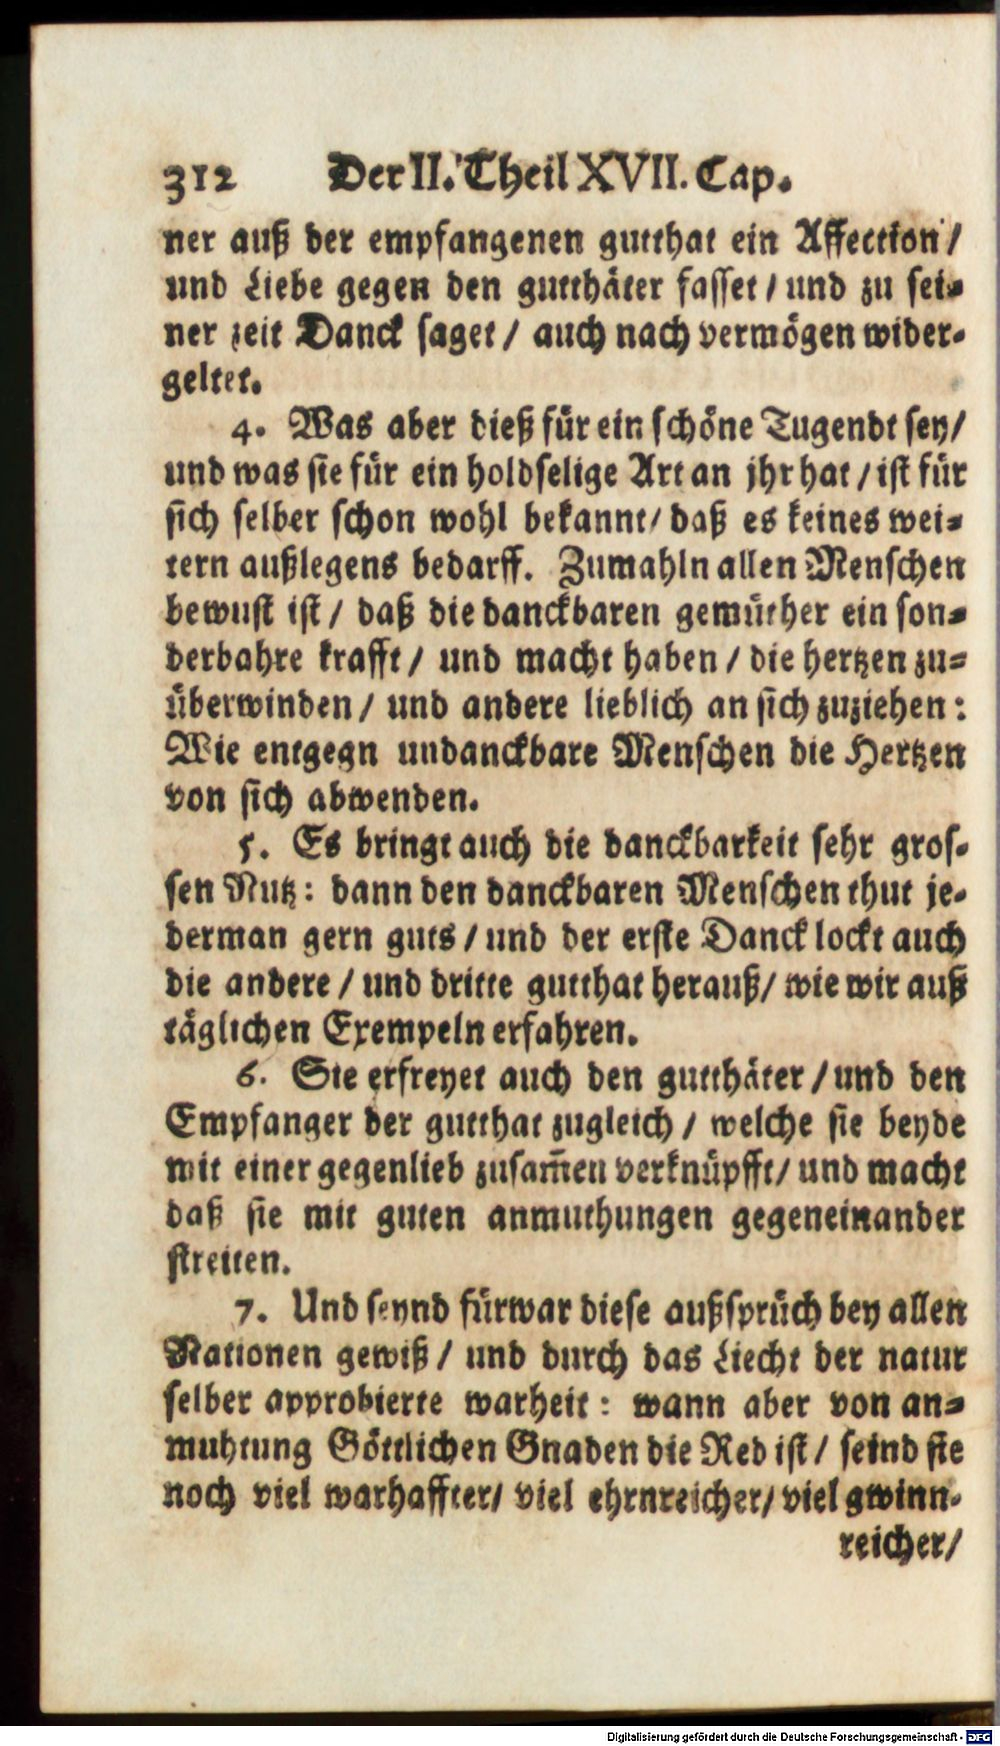 312 Der II. Theil XVII. Cap.
ner auß der empfangenen gutthat ein Affection/
und Liebe gegen den gutthäter fasset / und zu sei-
ner zeit Danck saget / auch nach vermögen wider-
geltet.
4. Was aber dieß für ein schöne Tugendt sey/
und was sie für ein holdselige Art an jhr hat / ist für
sich selber schon wohl bekannt/ daß es keines wei-
tern außlegens bedarff. Zumahln allen Menschen
bewust ist / daß die danckbaren gemüther ein son-
derbahre krafft / und macht haben / die hertzen zu-
überwinden / und andere lieblich an sich zuziehen:
Wie entgegn undanckbare Menschen die Hertzen
von sich abwenden.
5. Es bringt auch die danckbarkeit sehr gros-
sen Nutz: dann den danckbaren Menschen thut je-
derman gern guts / und der erste Danck lockt auch
die andere / und dritte gutthat herauß/ wie wir auß
täglichen Exempeln erfahren.
6. Sie erfreyet auch den gutthäter / und den
Empfanger der gutthat zugleich / welche sie beyde
mit einer gegenlieb zusam̃en verknüpfft/ und macht
daß sie mit guten anmuthungen gegeneinander
streiten.
7. Und seynd fürwar diese außsprüch bey allen
Nationen gewiß / und durch das Liecht der natur
selber approbierte warheit: wann aber von an-
muhtung Göttlichen Gnaden die Red ist / seind sie
noch viel warhaffter/ viel ehrnreicher/ viel gwinn-
reicher/
Digitalisierung gefördert durch die Deutsche Forschungsgemeinschaft - DFG